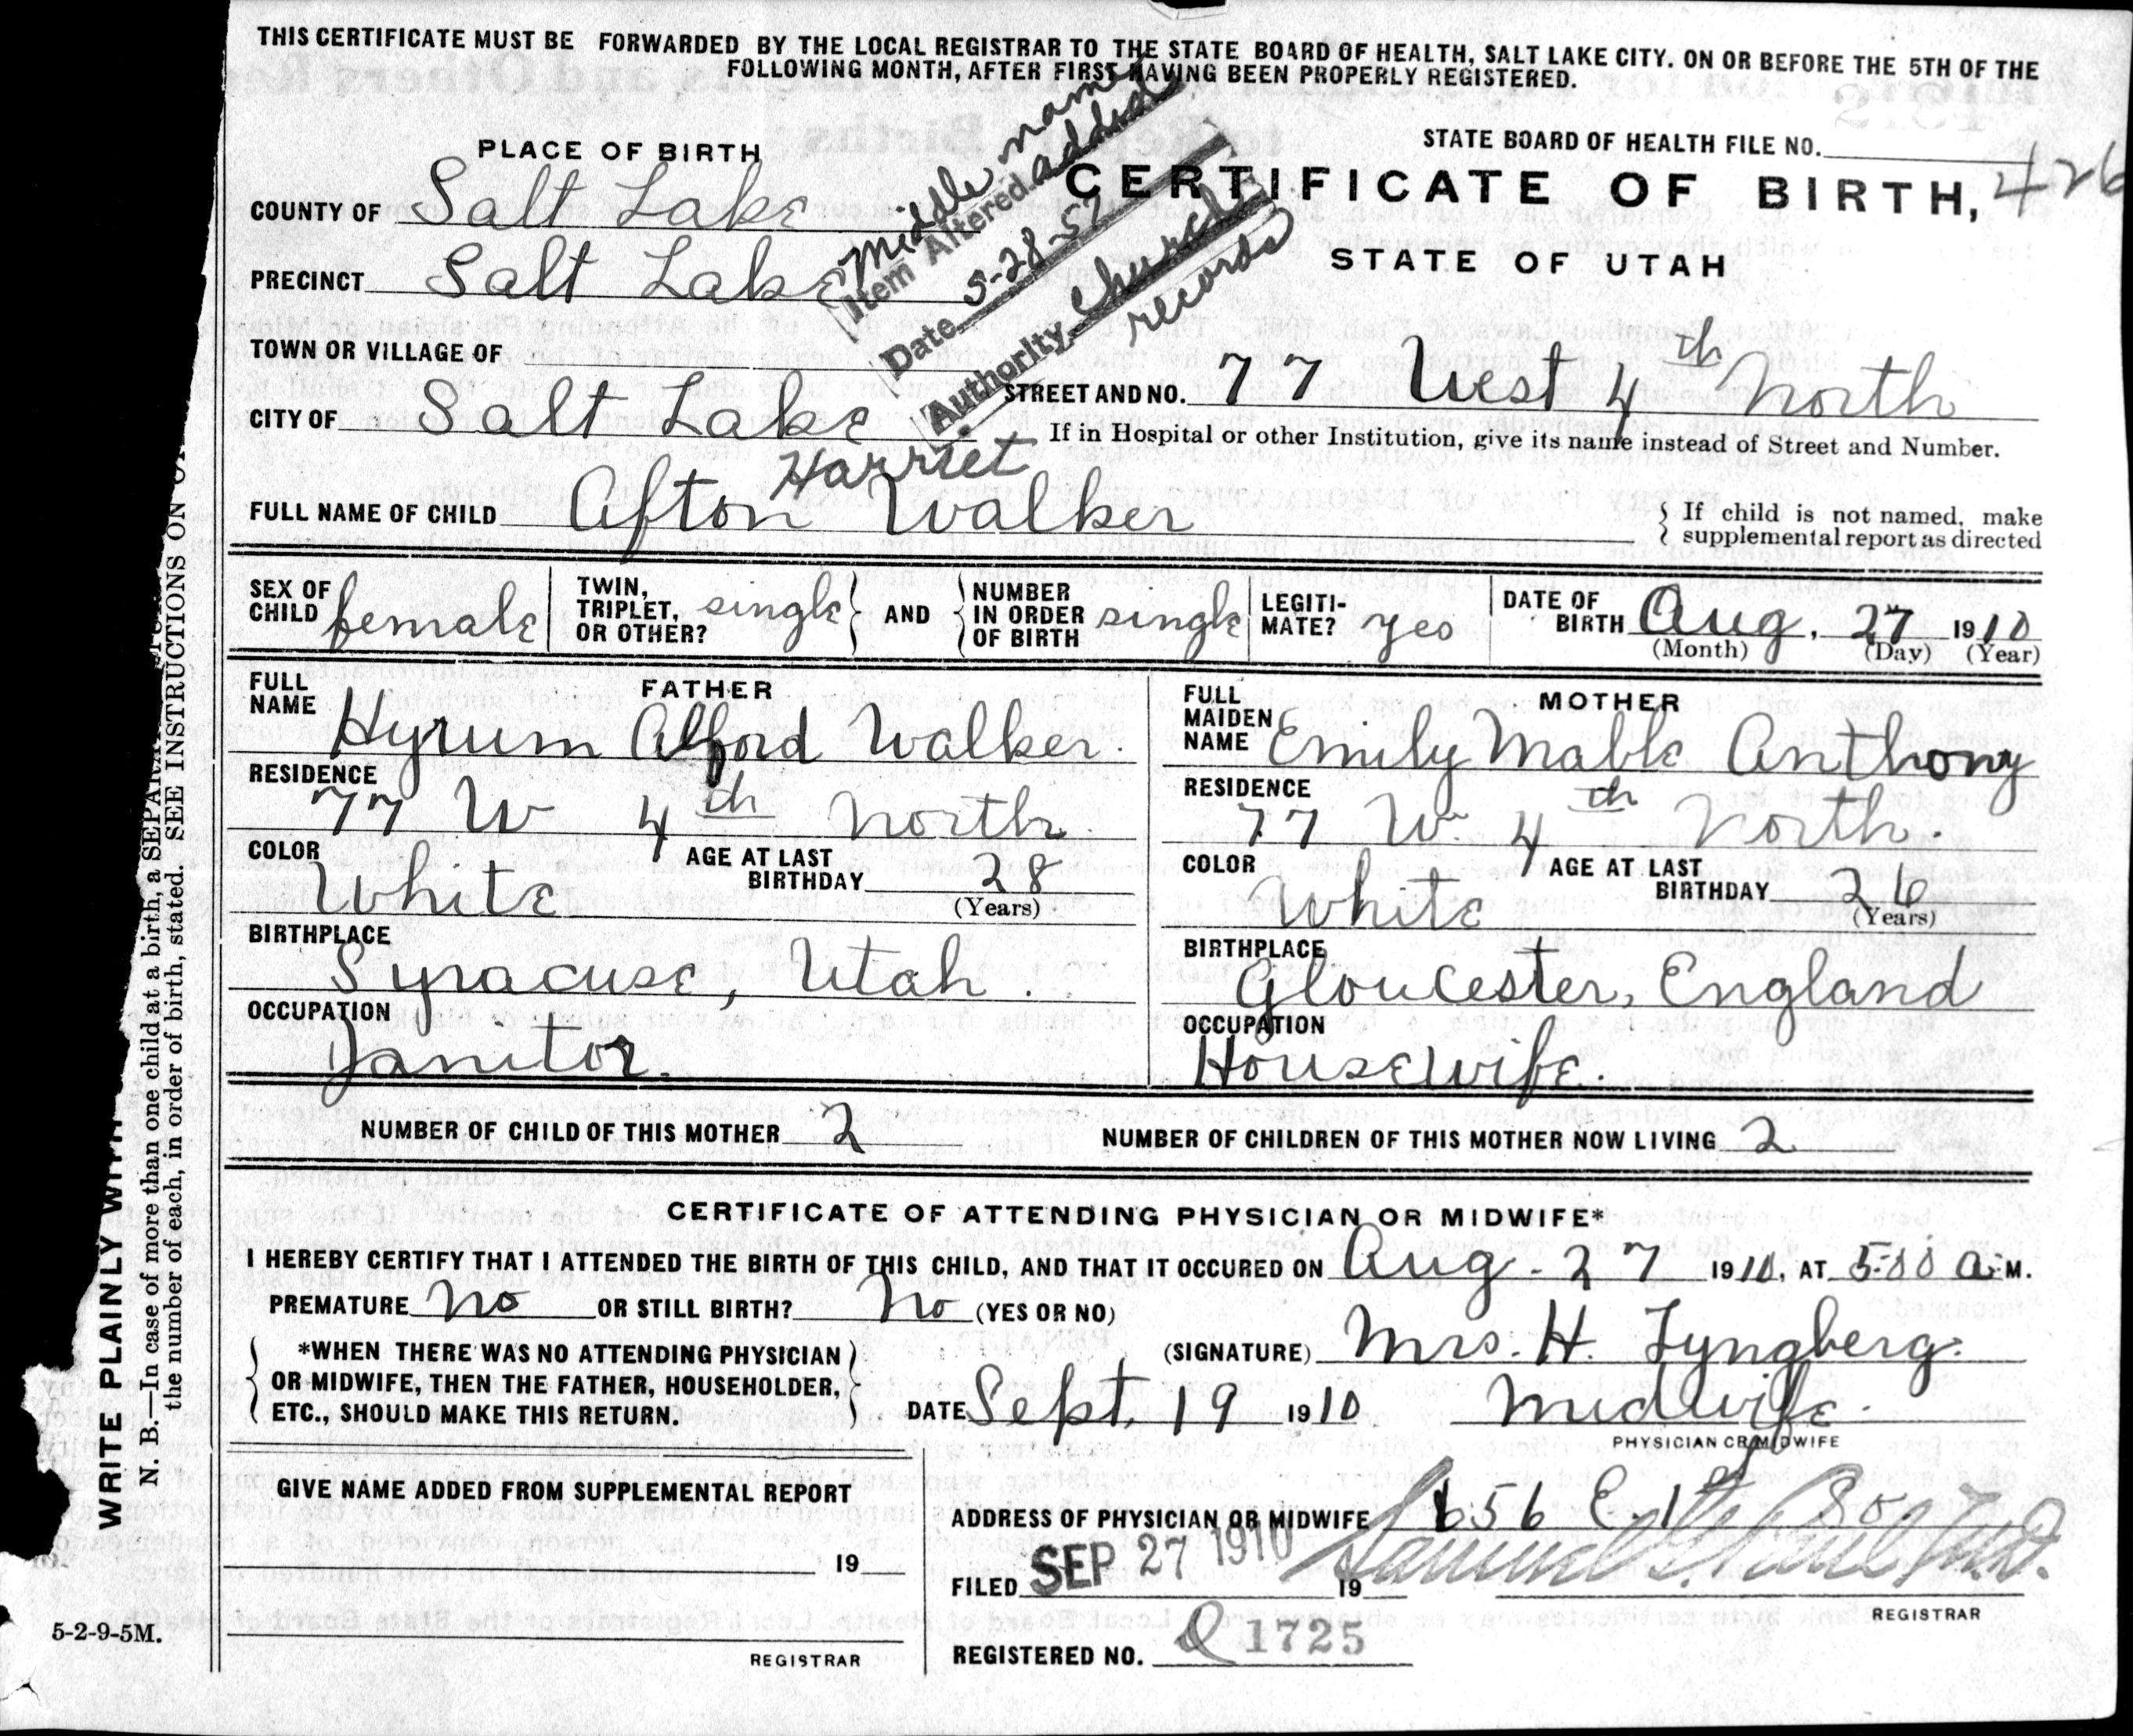 THIS CERTIFICATE MUST BE FORWARDED BY THE LOCAL REGISTRAR TO THE STATE BOARD OF HEALTH, SALT LAKE CITY. ON OR BEFORE THE 5TH OF THE
FOLLOWING MONTH, AFTER FIRST HAVING BEEN PROPERLY REGISTERED.
STATE BOARD OF HEALTH FILE NO. 426
CERTIFICATE OF BIRTH,
STATE OF UTAH
Middle name
Item Altered added
Date 5-28-57
Authority Church
records
PLACE OF BIRTH
COUNTY OF Salt Lake
PRECINCT Salt Lake
TOWN OR VILLAGE OF
CITY OF Salt Lake
STREET AND NO. 77 West 4th North
If in Hospital or other Institution, give its name instead of Street and Number.
Harriet
FULL NAME OF CHILD Afton Walker
If child is not named, make
supplemental report as directed
SEX OF CHILD female
TWIN, TRIPLET, OR OTHER? single
AND
NUMBER IN ORDER OF BIRTH single
LEGITI-MATE? yes
DATE OF BIRTH Aug. 27 1910
(Month) (Day) (Year)
FATHER
FULL NAME Hyrum Alford Walker.
RESIDENCE 77 W 4th North
COLOR White
AGE AT LAST BIRTHDAY 28
(Years)
BIRTHPLACE Syracuse, Utah.
OCCUPATION Janitor.
MOTHER
FULL MAIDEN NAME Emily Mable Anthony
RESIDENCE 77 W. 4th North.
COLOR White
AGE AT LAST BIRTHDAY 26
(Years)
BIRTHPLACE Gloucester, England
OCCUPATION Housewife.
NUMBER OF CHILD OF THIS MOTHER 2
NUMBER OF CHILDREN OF THIS MOTHER NOW LIVING 2
CERTIFICATE OF ATTENDING PHYSICIAN OR MIDWIFE*
I HEREBY CERTIFY THAT I ATTENDED THE BIRTH OF THIS CHILD, AND THAT IT OCCURED ON Aug. 27 1910, AT 5:00 A.M.
PREMATURE No OR STILL BIRTH? No (YES OR NO)
*WHEN THERE WAS NO ATTENDING PHYSICIAN
OR MIDWIFE, THEN THE FATHER, HOUSEHOLDER,
ETC., SHOULD MAKE THIS RETURN.
(SIGNATURE) Mrs. H. Lyngberg.
DATE Sept, 19 1910 Midwife.
PHYSICIAN OR MIDWIFE
GIVE NAME ADDED FROM SUPPLEMENTAL REPORT
19
REGISTRAR
ADDRESS OF PHYSICIAN OR MIDWIFE 656 E. 1st So
FILED SEP 27 1910 19
REGISTRAR
REGISTERED NO. 1725
5-2-9-5M.
WRITE PLAINLY WITH
N. B.—In case of more than one child at a birth, a
the number of each, in order of birth, stated. SEE INSTRUCTIONS ON